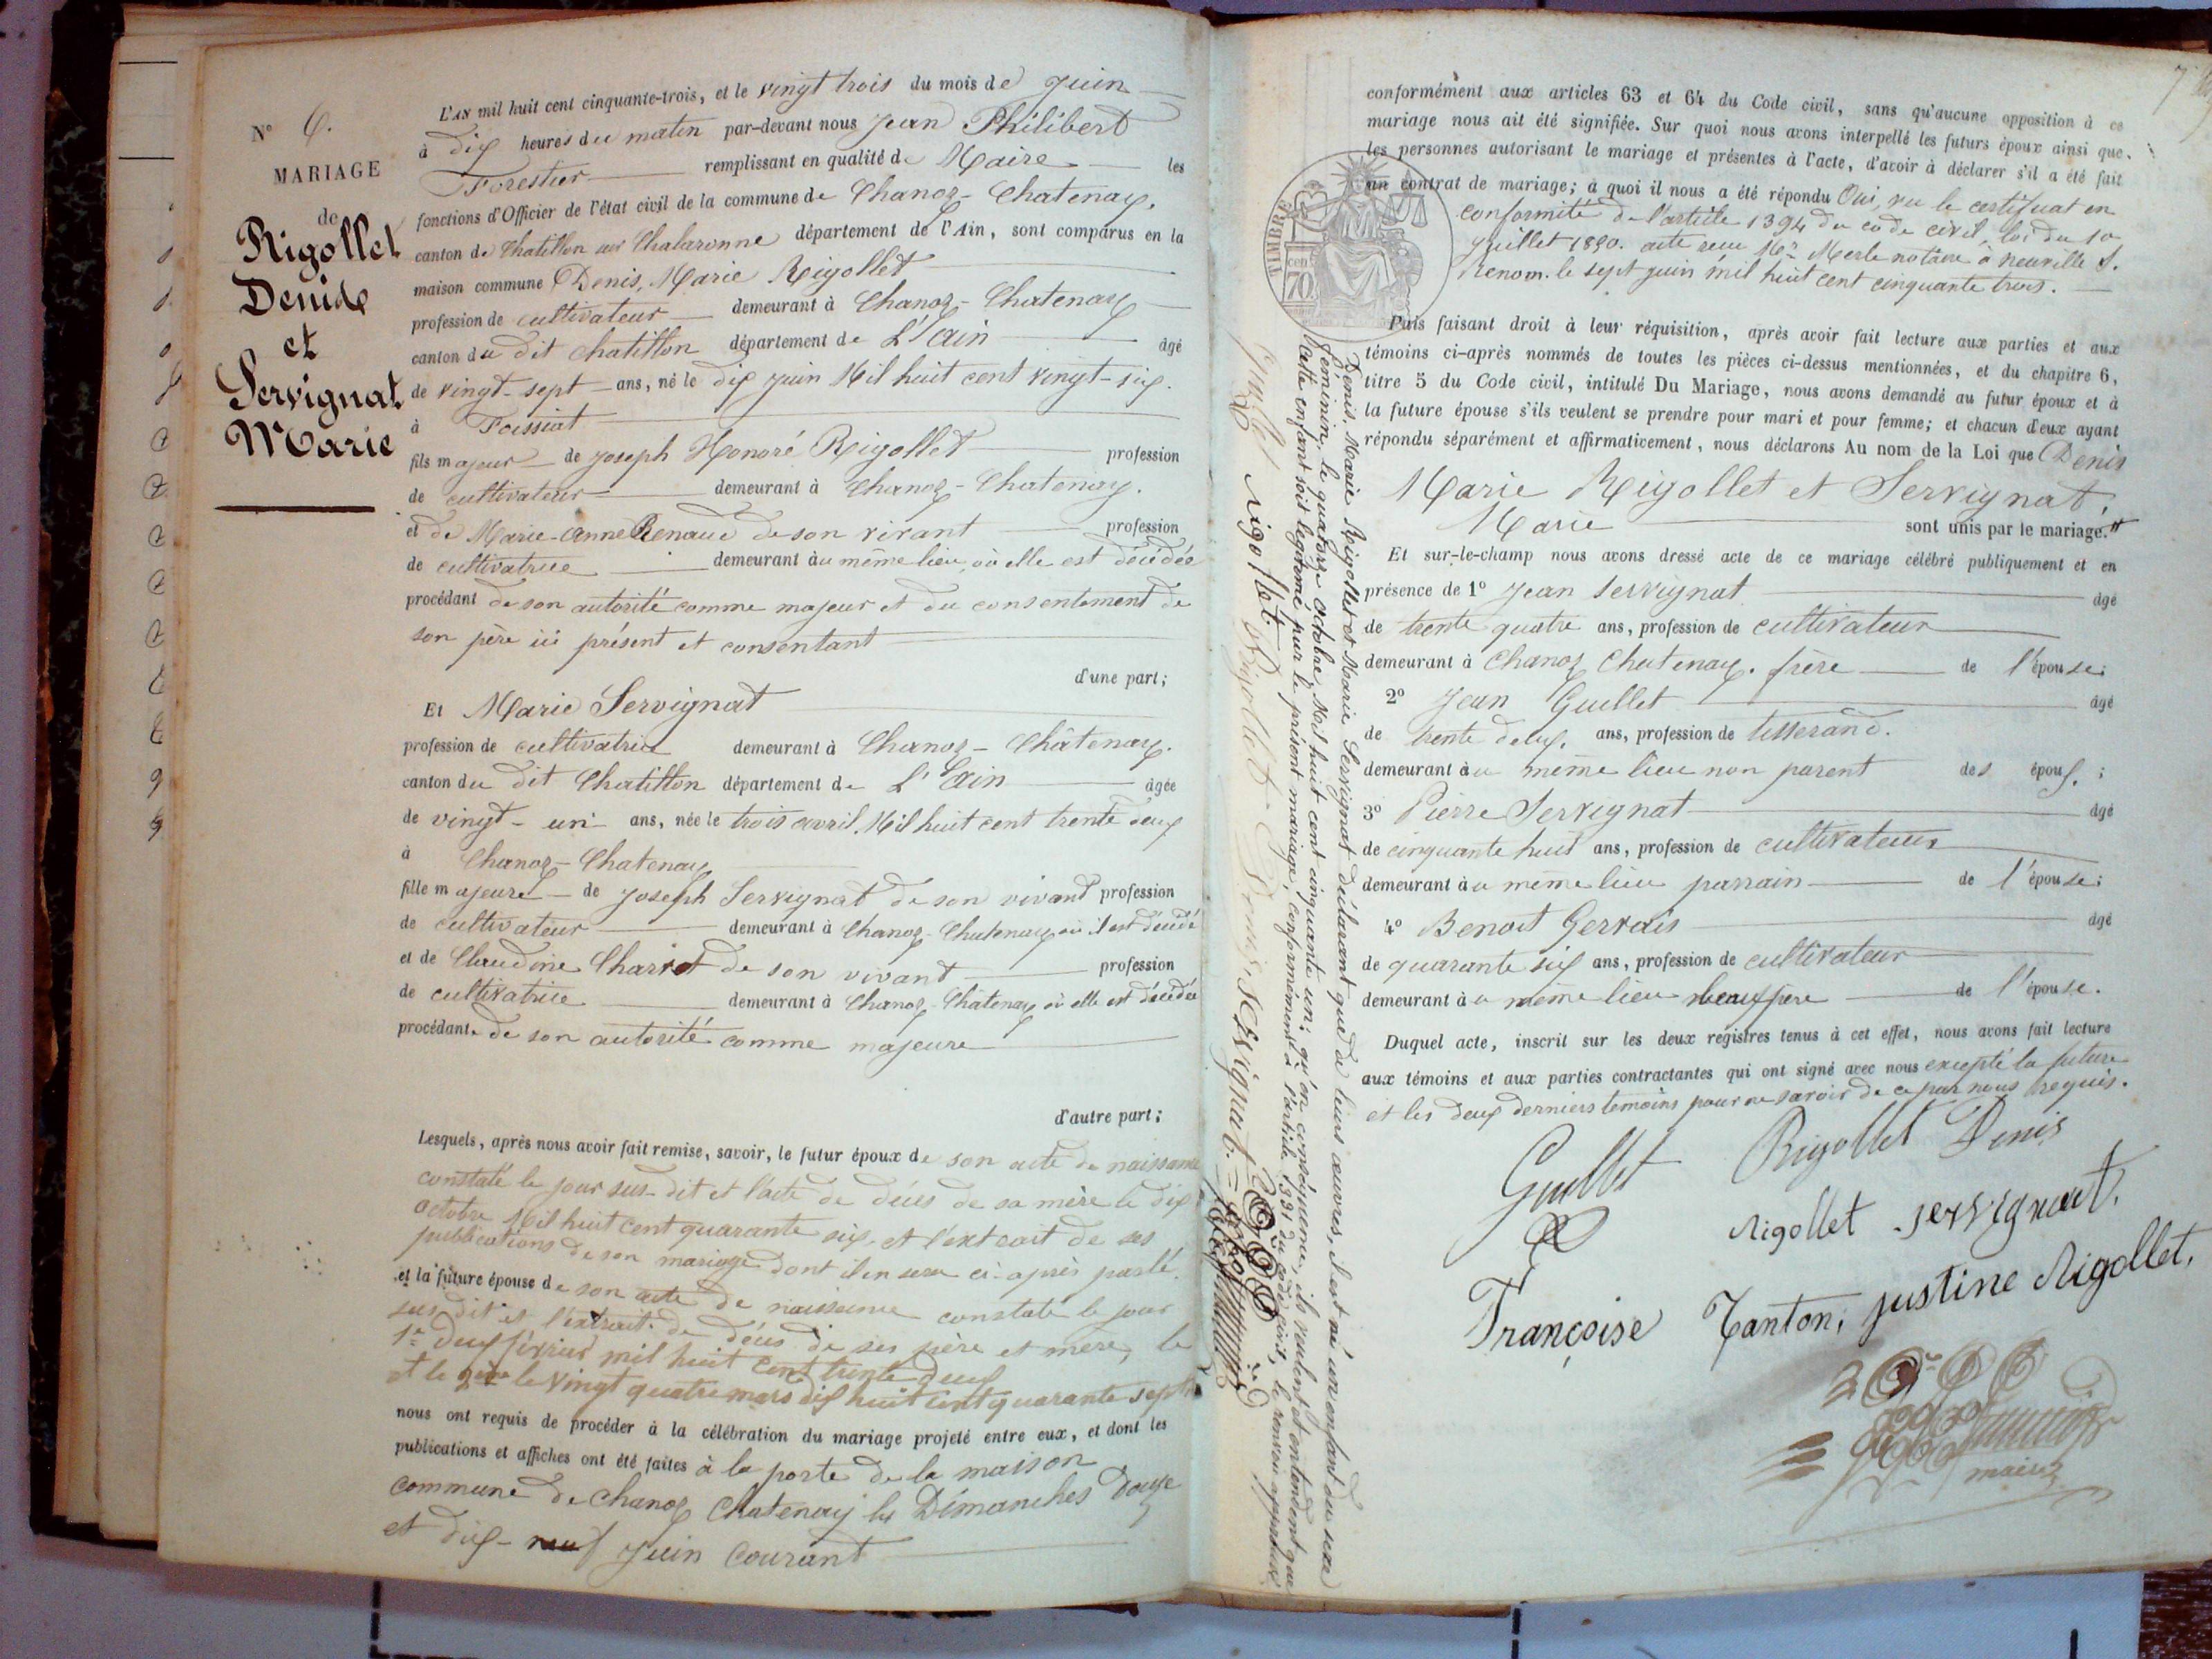 N° 6.
MARIAGE
de
Rigollet
Denis
et
Servignat
Marie
L'AN mil huit cent cinquante-trois, et le vingt trois du mois de Juin
à dix heures du matin par-devant nous Jean Philibert
Forestier remplissant en qualité de Maire les
fonctions d'Officier de l'état civil de la commune de Chanoz-Chatenay,
canton de Chatillon sur Chalaronne département de l'Ain, sont comparus en la
maison commune Denis, Marie Rigollet
profession de cultivateur demeurant à Chanoz-Chatenay
canton du dit chatillon département de L'Ain âgé
de vingt-sept ans, né le dix juin Mil huit cent vingt-six.
à Foissiat
fils majeur de Joseph Honoré Rigollet profession
de cultivateur demeurant à Chanoz-Chatenay.
et de Marie-Anne Renaud de son vivant profession
de cultivatrice demeurant au même lieu, où elle est décédée
procédant de son autorité comme majeur et du consentement de
son père ici présent et consentant
d'une part;
Et Marie Servignat
profession de cultivatrice demeurant à Chanoz-Châtenay.
canton du dit Chatillon département de L'Ain âgée
de vingt-un ans, née le trois avril Mil huit cent trente deux
à Chanoz-Chatenay
fille majeure de Joseph Servignat de son vivant profession
de cultivateur demeurant à Chanoz-Chatenay où il est décédé
et de Claudine Charvet de son vivant profession
de cultivatrice demeurant à Chanoz-Châtenay où elle est décédée
procédante de son autorité comme majeure
d'autre part;
Lesquels, après nous avoir fait remise, savoir, le futur époux de son acte de naissance
constaté le jour sus-dit et l'acte de décès de sa mère le dix
octobre Mil huit cent quarante six. et l'extrait de ses
publications de son mariage dont il en sera ci-après parlé.
et la future épouse de son acte de naissance constaté le jour
sus dit et l'extrait de décès de ses père et mère, le
1er deux février mil huit cent trente deux
et le 2ème le vingt quatre mars dix huit cent quarante sept
nous ont requis de procéder à la célébration du mariage projeté entre eux, et dont les
publications et affiches ont été faites à la porte de la maison
commune de Chanoz Chatenay les Dimanches douze
et dix-neuf Juin Courant
conformément aux articles 63 et 64 du Code civil, sans qu'aucune opposition à ce
mariage nous ait été signifiée. Sur quoi nous avons interpellé les futurs époux ainsi que
les personnes autorisant le mariage et présentes à l'acte, d'avoir à déclarer s'il a été fait
un contrat de mariage; à quoi il nous a été répondu Oui, vu le certificat en
conformité de l'article 1394 du code civil, loi du 10
juillet 1850. acte reçu Me Merle notaire à neuville S.
Renom. le sept juin mil huit cent cinquante trois.
TIMBRE
cent
70
Puis faisant droit à leur réquisition, après avoir fait lecture aux parties et aux
témoins ci-après nommés de toutes les pièces ci-dessus mentionnées, et du chapitre 6,
titre 5 du Code civil, intitulé Du Mariage, nous avons demandé au futur époux et à
la future épouse s'ils veulent se prendre pour mari et pour femme; et chacun d'eux ayant
répondu séparément et affirmativement, nous déclarons Au nom de la Loi que Denis
Marie Rigollet et Servignat,
Marie sont unis par le mariage.
Et sur-le-champ nous avons dressé acte de ce mariage célébré publiquement et en
présence de 1° Jean Servignat âgé
de trente quatre ans, profession de cultivateur
demeurant à Chanoz Chatenay. frère de l'épouse;
2° Jean Guillet âgé
de trente deux. ans, profession de tisserand.
demeurant au même lieu non parent des époux.;
3° Pierre Servignat âgé
de cinquante huit ans, profession de cultivateur
demeurant au même lieu parrain de l'épouse;
4° Benoit Gervais âgé
de quarante six ans, profession de cultivateur
demeurant au même lieu beau père de l'épouse.
Duquel acte, inscrit sur les deux registres tenus à cet effet, nous avons fait lecture
aux témoins et aux parties contractantes qui ont signé avec nous excepté la future
et les deux derniers témoins pour ne savoir de ce par nous requis.
Guillet Rigollet Denis
Rigollet servignat.
Françoise Tanton, justine Rigollet,
maire
Denis, Marie Rigollet et Marie Servignat déclarant que de leurs œuvres, il est né un enfant du sexe
féminin, le quatorze octobre, Mil huit cent cinquante un; qu'en conséquence, ils veulent et entendent que
cette enfant soit légitimé par le présent mariage, conformément à l'article 1331 du code civil, le renvoi approuvé
Guillet Rigollet. Rigollet Denis, servignat.